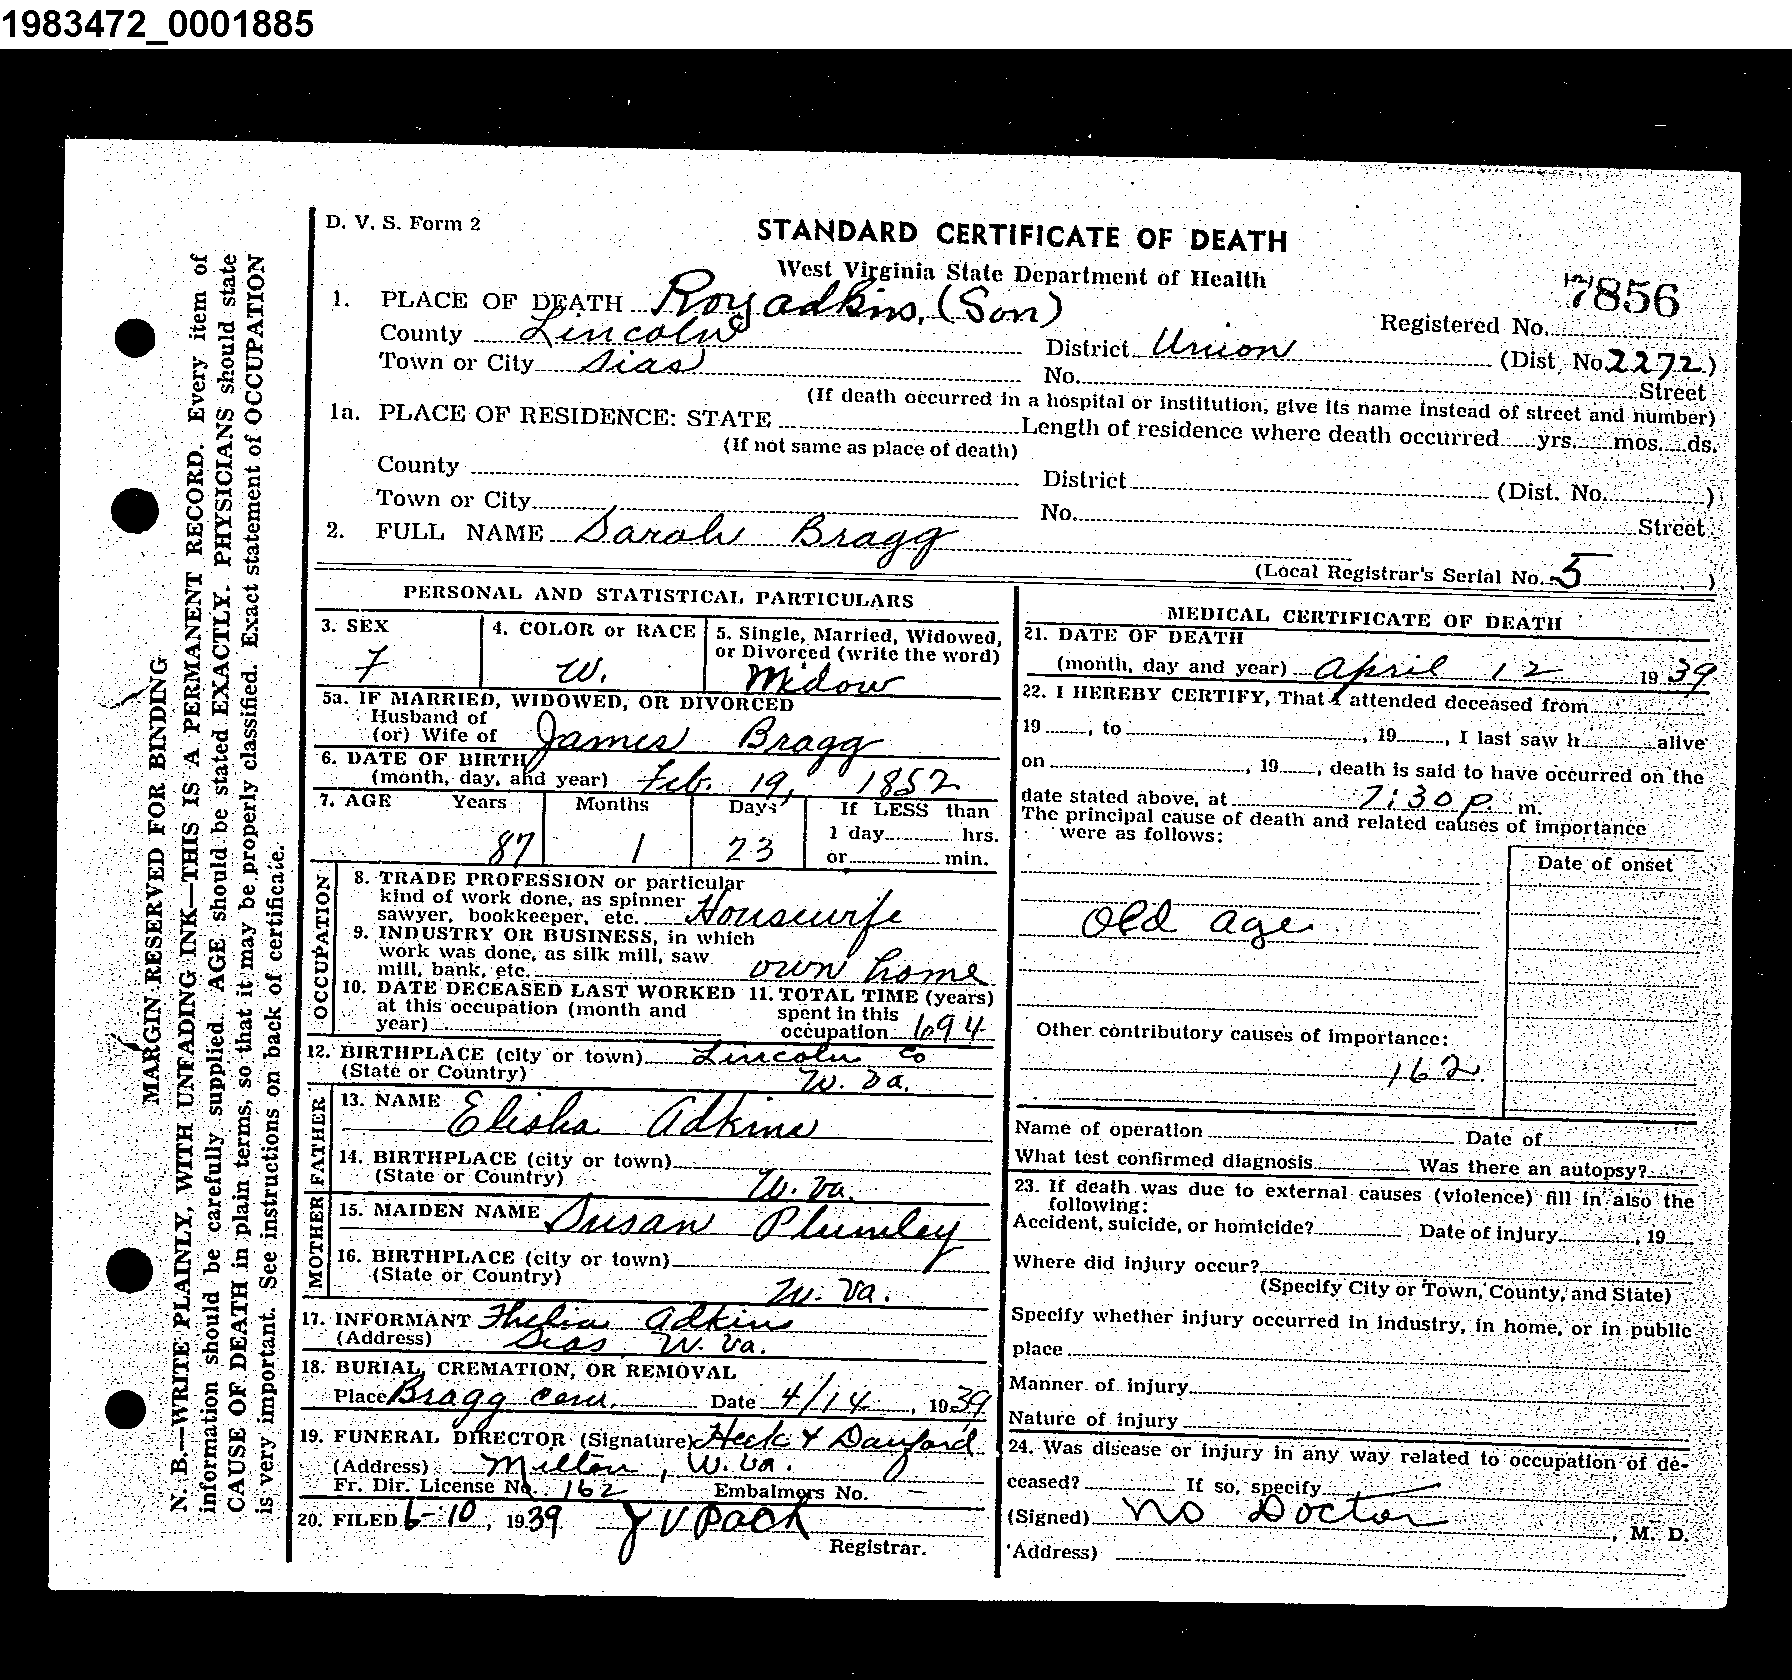 1983472_0001885
D. V. S. Form 2
STANDARD CERTIFICATE OF DEATH
West Virginia State Department of Health
7856
1. PLACE OF DEATH Roy Adkins, (Son)
Registered No.
County Lincoln District Union (Dist. No. 2272)
Town or City Sias No. Street
(If death occurred in a hospital or institution, give its name instead of street and number)
1a. PLACE OF RESIDENCE: STATE Length of residence where death occurred yrs. mos. ds.
(If not same as place of death)
County District (Dist. No. )
Town or City No. Street
2. FULL NAME Sarah Bragg
(Local Registrar's Serial No. 5 )
PERSONAL AND STATISTICAL PARTICULARS
3. SEX
F
4. COLOR or RACE
W.
5. Single, Married, Widowed,
or Divorced (write the word)
Widow
5a. IF MARRIED, WIDOWED, OR DIVORCED
Husband of
(or) Wife of James Bragg
6. DATE OF BIRTH
(month, day, and year) Feb. 19, 1852
7. AGE Years Months Days If LESS than
1 day hrs.
87 1 23 or min.
OCCUPATION
8. TRADE PROFESSION or particular
kind of work done, as spinner
sawyer, bookkeeper, etc. Housewife
9. INDUSTRY OR BUSINESS, in which
work was done, as silk mill, saw
mill, bank, etc. own home
10. DATE DECEASED LAST WORKED
at this occupation (month and
year)
11. TOTAL TIME (years)
spent in this
occupation 694
12. BIRTHPLACE (city or town) Lincoln Co
(State or Country) W. Va.
FATHER
13. NAME Elisha Adkins
14. BIRTHPLACE (city or town)
(State or Country) W. Va.
MOTHER
15. MAIDEN NAME Susan Plumley
16. BIRTHPLACE (city or town)
(State or Country) W. Va.
17. INFORMANT Thelia Adkins
(Address) Sias W. Va.
18. BURIAL, CREMATION, OR REMOVAL
Place Bragg cem. Date 4/14, 1939
19. FUNERAL DIRECTOR (Signature) Heck &
(Address) Milton, W. Va.
Fr. Dir. License No. 162 Embalmers No. —
20. FILED 6-10, 1939 J V Pack
Registrar.
MEDICAL CERTIFICATE OF DEATH
21. DATE OF DEATH
(month, day and year) April 12 1939
22. I HEREBY CERTIFY, That I attended deceased from
19 , to , 19 , I last saw h alive
on , 19 , death is said to have occurred on the
date stated above, at 7:30 p. m.
The principal cause of death and related causes of importance
were as follows:
Date of onset
Old age
Other contributory causes of importance:
162
Name of operation Date of
What test confirmed diagnosis Was there an autopsy?
23. If death was due to external causes (violence) fill in also the
following:
Accident, suicide, or homicide? Date of injury , 19
Where did injury occur?
(Specify City or Town, County, and State)
Specify whether injury occurred in industry, in home, or in public
place
Manner of injury
Nature of injury
24. Was disease or injury in any way related to occupation of de-
ceased? If so, specify
(Signed) No Doctor , M. D.
(Address)
MARGIN RESERVED FOR BINDING
N. B.—WRITE PLAINLY, WITH UNFADING INK—THIS IS A PERMANENT RECORD. Every item of
information should be carefully supplied. AGE should be stated EXACTLY. PHYSICIANS should state
CAUSE OF DEATH in plain terms, so that it may be properly classified. Exact statement of OCCUPATION
is very important. See instructions on back of certificate.